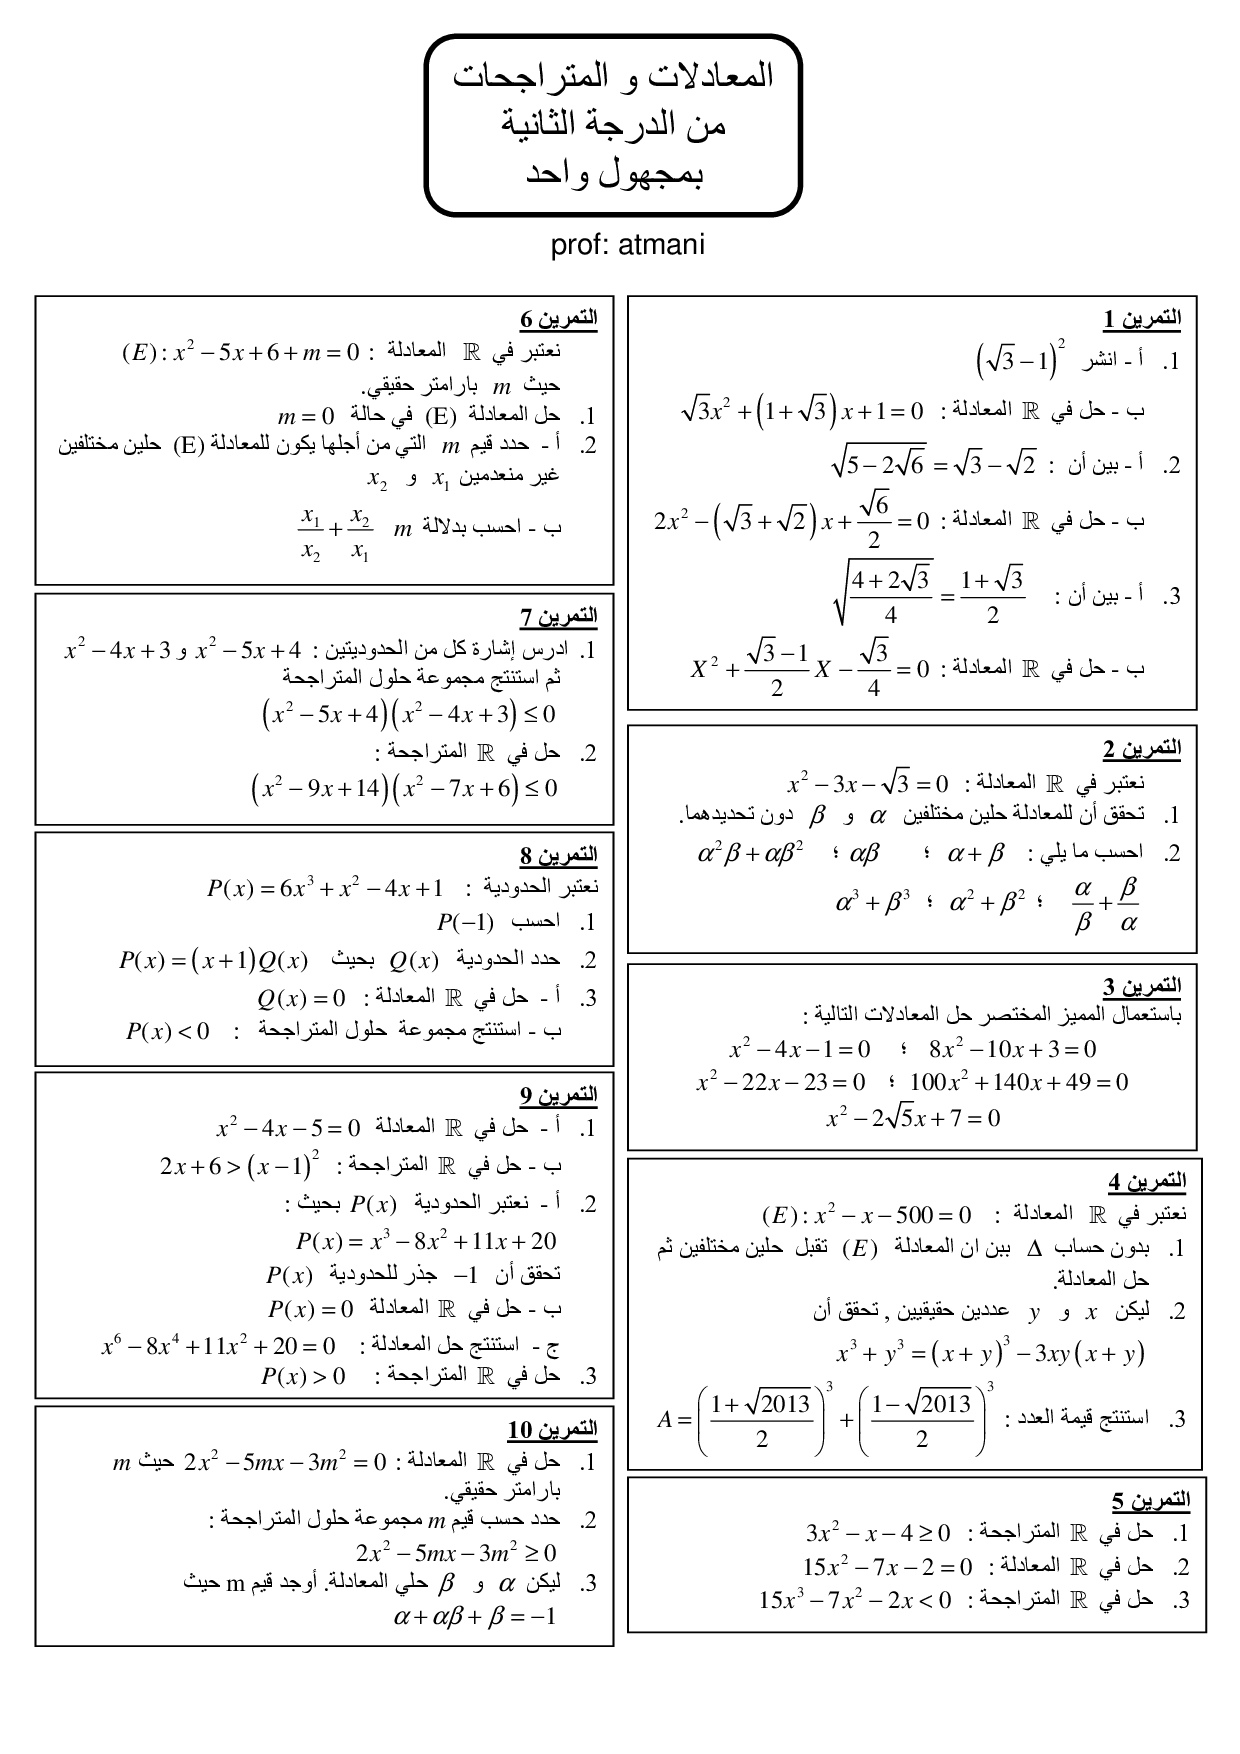 المعادلات و المتراجحات
من الدرجة الثانية
بمجهول واحد
prof: atmani
التمرين 1
1. أ - انشر (√3 − 1)²
ب - حل في ℝ المعادلة : √3x² + (1 + √3)x + 1 = 0
2. أ - بين أن : √(5 − 2√6) = √3 − √2
ب - حل في ℝ المعادلة : 2x² − (√3 + √2)x + √6/2 = 0
3. أ - بين أن : √((4 + 2√3)/4) = (1 + √3)/2
ب - حل في ℝ المعادلة : X² + (√3 − 1)/2 X − √3/4 = 0
التمرين 2
نعتبر في ℝ المعادلة : x² − 3x − √3 = 0
1. تحقق أن للمعادلة حلين مختلفين α و β دون تحديدهما.
2. احسب ما يلي : α + β ؛ αβ ؛ α²β + αβ²
α/β + β/α ؛ α² + β² ؛ α³ + β³
التمرين 3
باستعمال المميز المختصر حل المعادلات التالية :
8x² − 10x + 3 = 0 ؛ x² − 4x − 1 = 0
100x² + 140x + 49 = 0 ؛ x² − 22x − 23 = 0
x² − 2√5x + 7 = 0
التمرين 4
نعتبر في ℝ المعادلة : (E): x² − x − 500 = 0
1. بدون حساب Δ بين ان المعادلة (E) تقبل حلين مختلفين ثم
حل المعادلة.
2. ليكن x و y عددين حقيقيين , تحقق أن
x³ + y³ = (x + y)³ − 3xy(x + y)
3. استنتج قيمة العدد : A = ((1 + √2013)/2)³ + ((1 − √2013)/2)³
التمرين 5
1. حل في ℝ المتراجحة : 3x² − x − 4 ≥ 0
2. حل في ℝ المعادلة : 15x² − 7x − 2 = 0
3. حل في ℝ المتراجحة : 15x³ − 7x² − 2x < 0
التمرين 6
نعتبر في ℝ المعادلة : (E): x² − 5x + 6 + m = 0
حيث m بارامتر حقيقي.
1. حل المعادلة (E) في حالة m = 0
2. أ - حدد قيم m التي من أجلها يكون للمعادلة (E) حلين مختلفين
غير منعدمين x₁ و x₂
ب - احسب بدلالة m x₁/x₂ + x₂/x₁
التمرين 7
1. ادرس إشارة كل من الحدوديتين : x² − 5x + 4 و x² − 4x + 3
ثم استنتج مجموعة حلول المتراجحة
(x² − 5x + 4)(x² − 4x + 3) ≤ 0
2. حل في ℝ المتراجحة :
(x² − 9x + 14)(x² − 7x + 6) ≤ 0
التمرين 8
نعتبر الحدودية : P(x) = 6x³ + x² − 4x + 1
1. احسب P(−1)
2. حدد الحدودية Q(x) بحيث P(x) = (x + 1)Q(x)
3. أ - حل في ℝ المعادلة : Q(x) = 0
ب - استنتج مجموعة حلول المتراجحة : P(x) < 0
التمرين 9
1. أ - حل في ℝ المعادلة x² − 4x − 5 = 0
ب - حل في ℝ المتراجحة : 2x + 6 > (x − 1)²
2. أ - نعتبر الحدودية P(x) بحيث :
P(x) = x³ − 8x² + 11x + 20
تحقق أن −1 جذر للحدودية P(x)
ب - حل في ℝ المعادلة P(x) = 0
ج - استنتج حل المعادلة : x⁶ − 8x⁴ + 11x² + 20 = 0
3. حل في ℝ المتراجحة : P(x) > 0
التمرين 10
1. حل في ℝ المعادلة : 2x² − 5mx − 3m² = 0 حيث m
بارامتر حقيقي.
2. حدد حسب قيم m مجموعة حلول المتراجحة :
2x² − 5mx − 3m² ≥ 0
3. ليكن α و β حلي المعادلة. أوجد قيم m حيث
α + αβ + β = −1